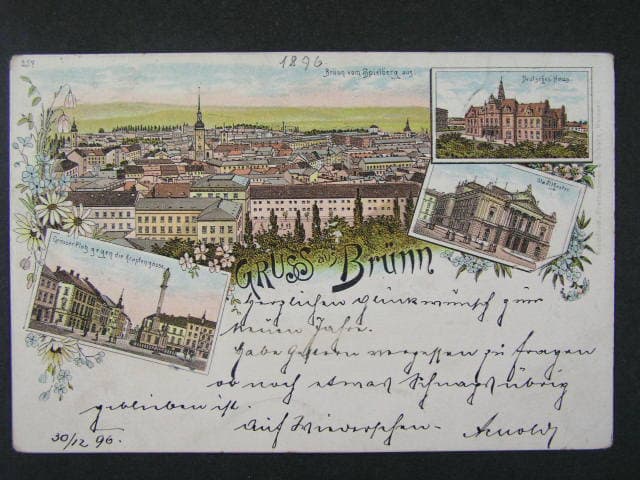 257
1896
Brünn vom Spielberg aus
Deutsches Haus
Stadttheater
Grosser Platz gegen die Krapfengasse
GRUSS aus Brünn
Herzlichen Glückwünsch zum
neuen Jahre.
Habe gestern vergessen zu fragen
ob noch etwas Schnaps übrig
geblieben ist.
Auf Wiedersehen. Arnold
30/12 96.